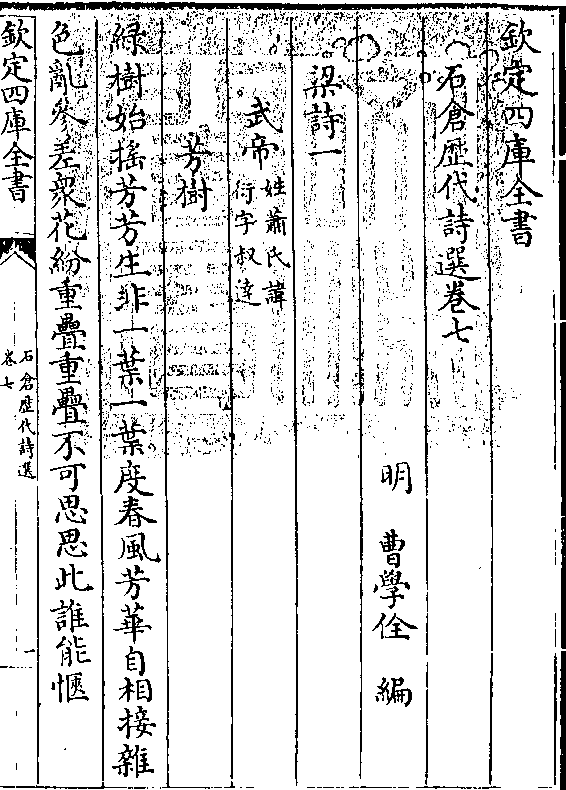 欽定四庫全書
石倉歴代詩選卷七
明 曹學佺 編
梁詩一
武帝 姓蕭氏諱
衍字叔達
芳樹
緑樹始揺芳芳生非一葉一葉度春風芳華自相接雜
色亂參差衆花紛重疊重疊不可思思此誰能愜
欽定四庫全書
石倉歴代詩選
卷七
一